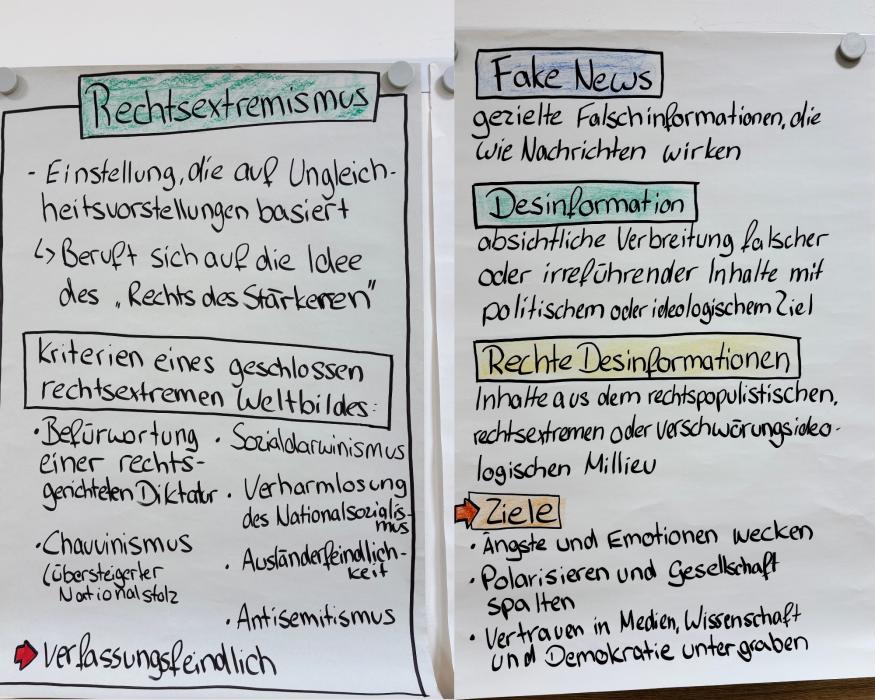 Rechtsextremismus
- Einstellung, die auf Ungleich-
heitsvorstellungen basiert
↳ Beruft sich auf die Idee
des „Rechts des Stärkeren"
Kriterien eines geschlossen
rechtsextremen Weltbildes:
· Befürwortung
einer rechts-
gerichteten Diktatur
· Chauvinismus
(übersteigerter
Nationalstolz
· Sozialdarwinismus
· Verharmlosung
des Nationalsozialis-
mus
· Ausländerfeindlich-
keit
· Antisemitismus
➡ verfassungsfeindlich
Fake News
gezielte Falschinformationen, die
wie Nachrichten wirken
Desinformation
absichtliche Verbreitung falscher
oder irreführender Inhalte mit
politischem oder ideologischem Ziel
Rechte Desinformationen
Inhalte aus dem rechtspopulistischen,
rechtsextremen oder verschwörungsideo-
logischen Millieu
➡ Ziele
· Ängste und Emotionen wecken
· Polarisieren und Gesellschaft
spalten
· Vertrauen in Medien, Wissenschaft
und Demokratie untergraben